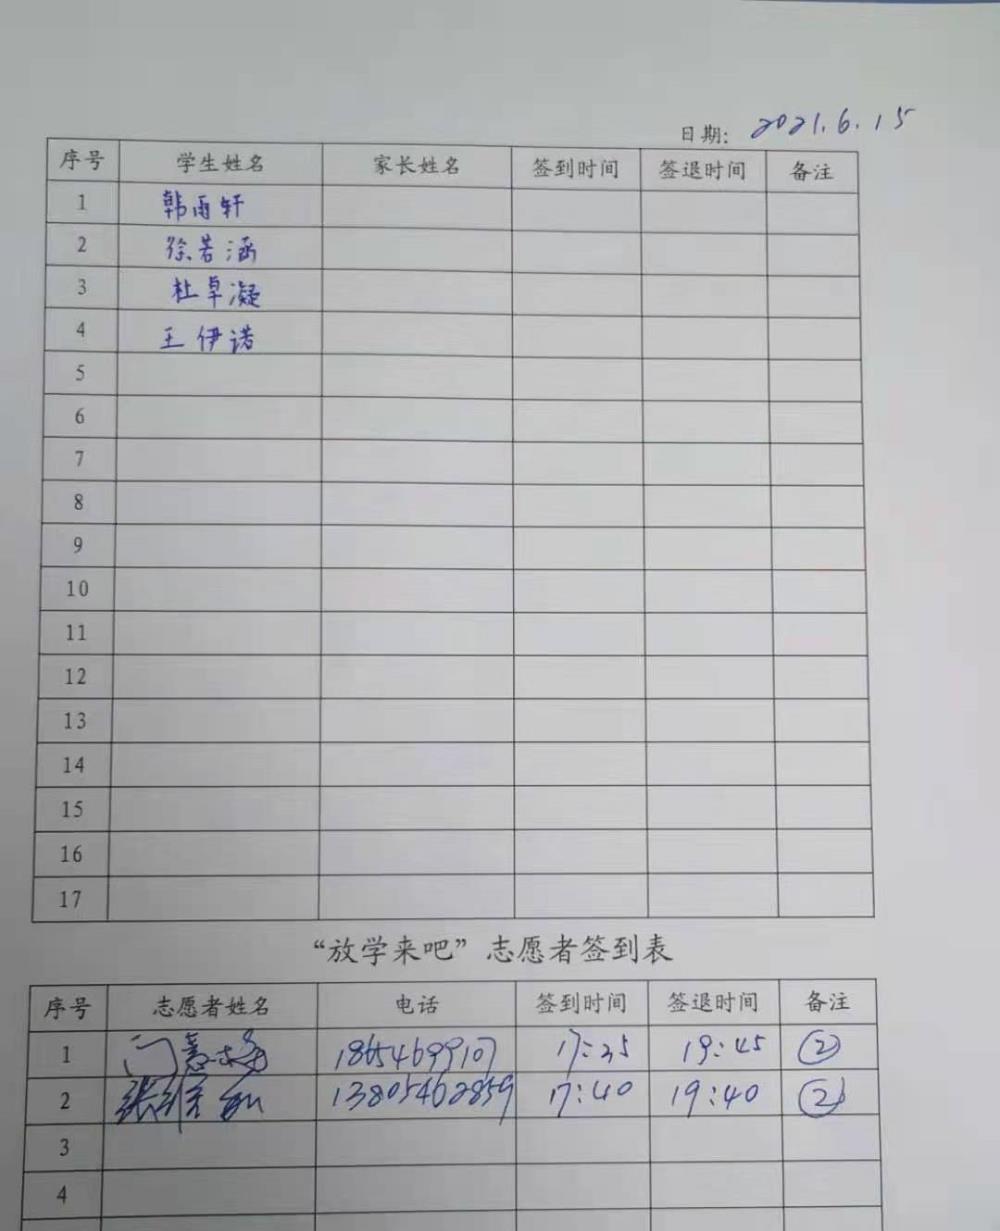 日期: 2021.6.15
序号 学生姓名 家长姓名 签到时间 签退时间 备注
1 韩雨轩
2 徐若涵
3 杜卓凝
4 王伊诺
5
6
7
8
9
10
11
12
13
14
15
16
17
“放学来吧”志愿者签到表
序号 志愿者姓名 电话 签到时间 签退时间 备注
1 18654699107 17:35 19:45 ②
2 13805462859 17:40 19:40 ②
3
4